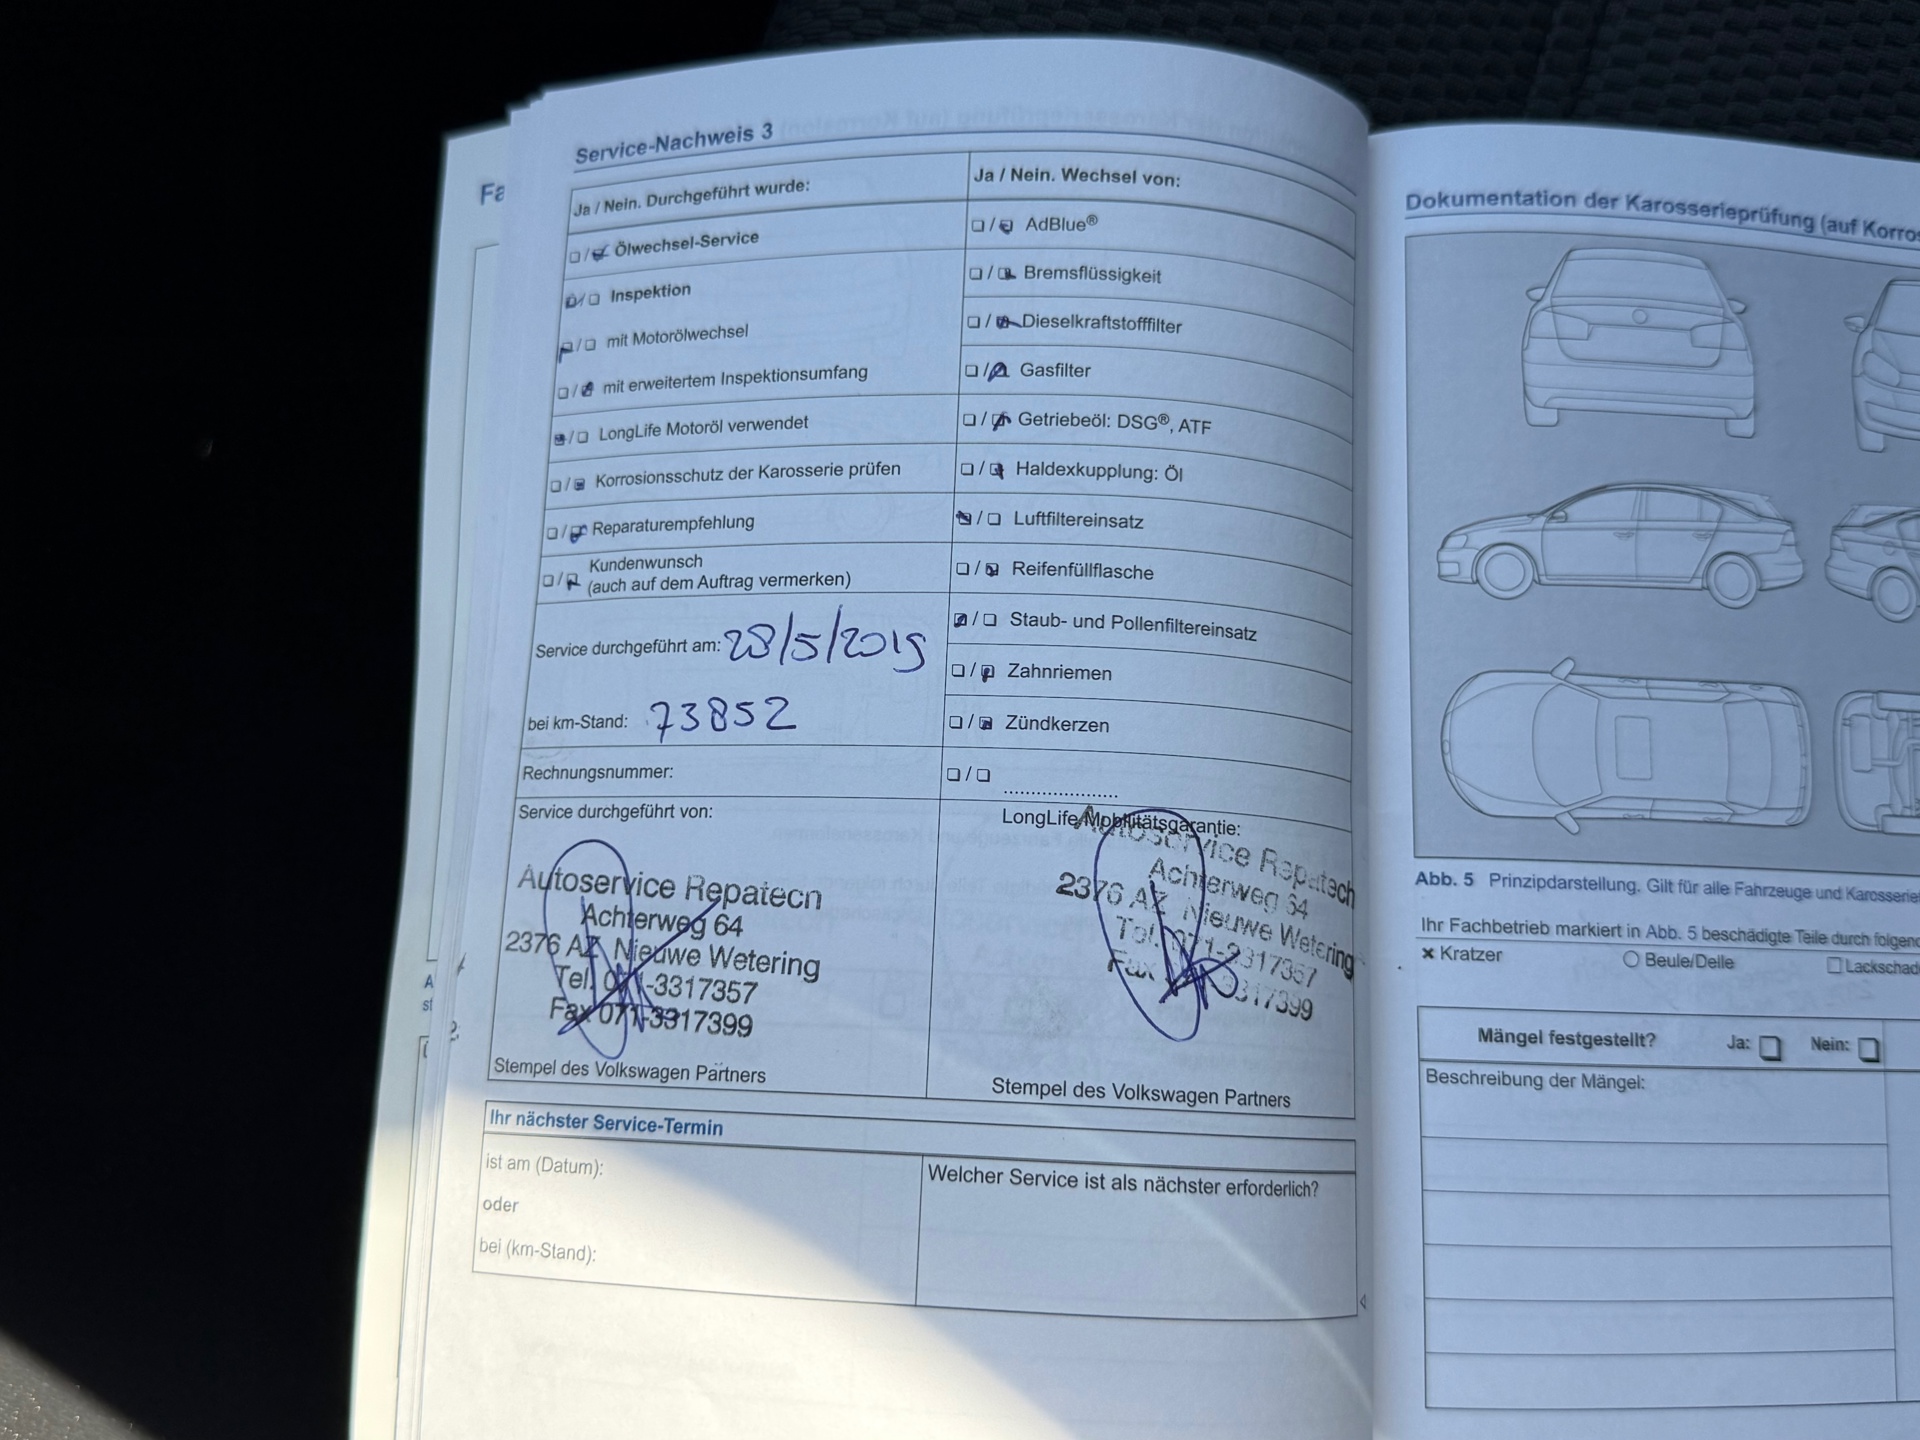 Fa
Service-Nachweis 3
Ja / Nein. Durchgeführt wurde:
Ölwechsel-Service
Inspektion
mit Motorölwechsel
mit erweitertem Inspektionsumfang
LongLife Motoröl verwendet
Korrosionsschutz der Karosserie prüfen
Reparaturempfehlung
Kundenwunsch
(auch auf dem Auftrag vermerken)
Service durchgeführt am: 28/5/2019
bei km-Stand: 73852
Rechnungsnummer:
Service durchgeführt von:
Autoservice Repatech
Achterweg 64
2376 AZ Nieuwe Wetering
Tel. 071-3317357
Fax 071-3317399
Stempel des Volkswagen Partners
Ja / Nein. Wechsel von:
AdBlue®
Bremsflüssigkeit
Dieselkraftstofffilter
Gasfilter
Getriebeöl: DSG®, ATF
Haldexkupplung: Öl
Luftfiltereinsatz
Reifenfüllflasche
Staub- und Pollenfiltereinsatz
Zahnriemen
Zündkerzen
LongLife/Mobilitätsgarantie:
Autoservice Repatech
Achterweg 64
2376 AZ Nieuwe Wetering
Tel. 071-3317357
Fax 071-3317399
Stempel des Volkswagen Partners
Ihr nächster Service-Termin
ist am (Datum):
oder
bei (km-Stand):
Welcher Service ist als nächster erforderlich?
Dokumentation der Karosserieprüfung (auf Korros
Abb. 5 Prinzipdarstellung. Gilt für alle Fahrzeuge und Karosserie
Ihr Fachbetrieb markiert in Abb. 5 beschädigte Teile durch folgend
Kratzer
Beule/Delle
Lackschad
Mängel festgestellt? Ja: Nein:
Beschreibung der Mängel: